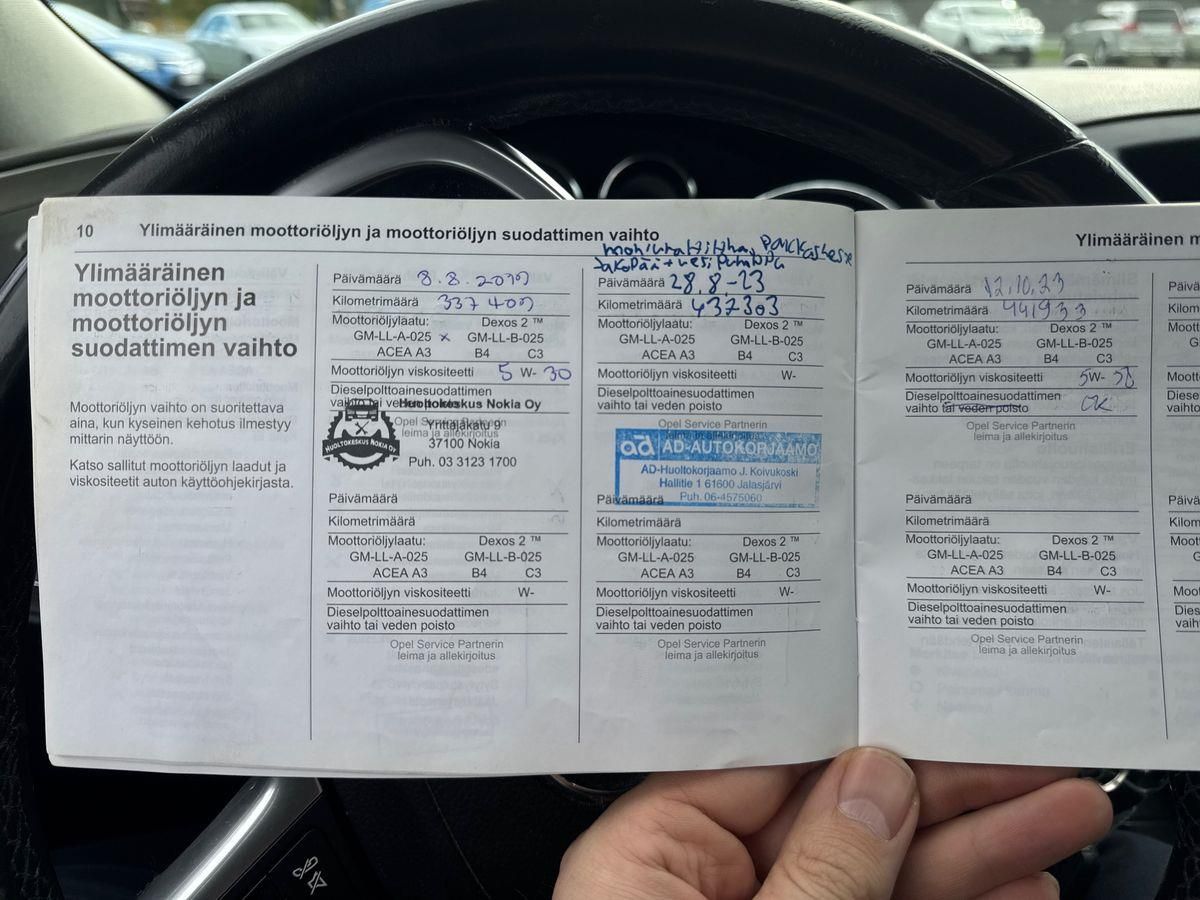 10 Ylimääräinen moottoriöljyn ja moottoriöljyn suodattimen vaihto
Ylimääräinen
moottoriöljyn ja
moottoriöljyn
suodattimen vaihto
Moottoriöljyn vaihto on suoritettava
aina, kun kyseinen kehotus ilmestyy
mittarin näyttöön.
Katso sallitut moottoriöljyn laadut ja
viskositeetit auton käyttöohjekirjasta.
Päivämäärä 8.8.2019
Kilometrimäärä 337400
Moottoriöljylaatu: Dexos 2 ™
GM-LL-A-025 x GM-LL-B-025
ACEA A3 B4 C3
Moottoriöljyn viskositeetti 5 W- 30
Dieselpolttoainesuodattimen
vaihto tai veden poisto
Opel Service Partnerin
leima ja allekirjoitus
Huoltokeskus Nokia Oy
Yrittäjäkatu 9
37100 Nokia
Puh. 03 3123 1700
HUOLTOKESKUS NOKIA OY
Päivämäärä
Kilometrimäärä
Moottoriöljylaatu: Dexos 2 ™
GM-LL-A-025 GM-LL-B-025
ACEA A3 B4 C3
Moottoriöljyn viskositeetti W-
Dieselpolttoainesuodattimen
vaihto tai veden poisto
Opel Service Partnerin
leima ja allekirjoitus
Jakopää + vesipumppu
Päivämäärä 28.8-23
Kilometrimäärä 432303
Moottoriöljylaatu: Dexos 2 ™
GM-LL-A-025 GM-LL-B-025
ACEA A3 B4 C3
Moottoriöljyn viskositeetti W-
Dieselpolttoainesuodattimen
vaihto tai veden poisto
Opel Service Partnerin
leima ja allekirjoitus
ad AD-AUTOKORJAAMO
AD-Huoltokorjaamo J. Koivukoski
Hallitie 1 61600 Jalasjärvi
Puh. 06-4575060
Päivämäärä
Kilometrimäärä
Moottoriöljylaatu: Dexos 2 ™
GM-LL-A-025 GM-LL-B-025
ACEA A3 B4 C3
Moottoriöljyn viskositeetti W-
Dieselpolttoainesuodattimen
vaihto tai veden poisto
Opel Service Partnerin
leima ja allekirjoitus
Ylimääräinen m
Päivämäärä 12.10.23
Kilometrimäärä 441933
Moottoriöljylaatu: Dexos 2 ™
GM-LL-A-025 GM-LL-B-025
ACEA A3 B4 C3
Moottoriöljyn viskositeetti 5W-
Dieselpolttoainesuodattimen
vaihto tai veden poisto OK
Opel Service Partnerin
leima ja allekirjoitus
Päivämäärä
Kilometrimäärä
Moottoriöljylaatu: Dexos 2 ™
GM-LL-A-025 GM-LL-B-025
ACEA A3 B4 C3
Moottoriöljyn viskositeetti W-
Dieselpolttoainesuodattimen
vaihto tai veden poisto
Opel Service Partnerin
leima ja allekirjoitus